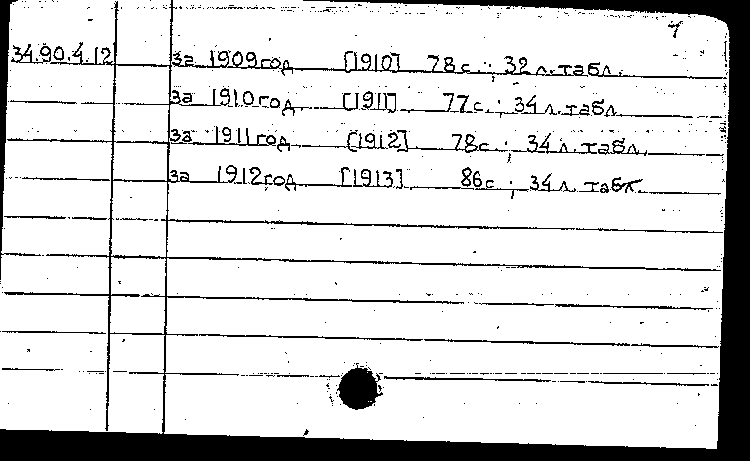 34.90.4.12 за 1909год [1910] 78с.; 32л.табл.
за 1910год [1911] 77с.; 34л.табл.
за 1911год [1912] 78с.; 34л.табл.
за 1912год [1913] 86с.; 34л.табл.